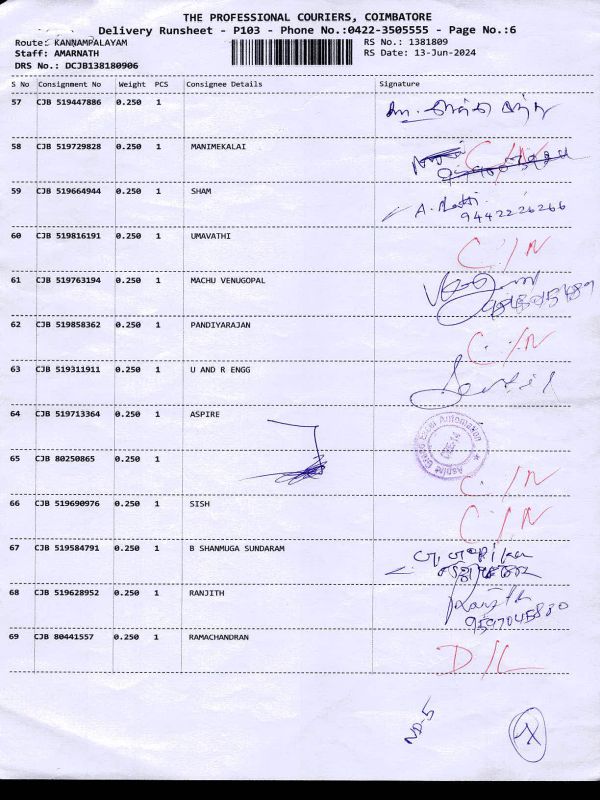 THE PROFESSIONAL COURIERS, COIMBATORE
Delivery Runsheet - P103 - Phone No.:0422-3505555 - Page No.:6
Route: KANNAMPALAYAM RS No.: 1381809
Staff: AMARNATH RS Date: 13-Jun-2024
DRS No.: DCJB138180906
S No Consignment No Weight PCS Consignee Details Signature
57 CJB 519447886 0.250 1
58 CJB 519729828 0.250 1 MANIMEKALAI C/N
59 CJB 519664944 0.250 1 SHAM A.
9442226266
60 CJB 519816191 0.250 1 UMAVATHI C/N
61 CJB 519763194 0.250 1 MACHU VENUGOPAL
62 CJB 519858362 0.250 1 PANDIYARAJAN C/N
63 CJB 519311911 0.250 1 U AND R ENGG
64 CJB 519713364 0.250 1 ASPIRE
65 CJB 80250865 0.250 1 C/N
66 CJB 519690976 0.250 1 SISH C/N
67 CJB 519584791 0.250 1 B SHANMUGA SUNDARAM
68 CJB 519628952 0.250 1 RANJITH Ranjith
69 CJB 80441557 0.250 1 RAMACHANDRAN D/L
ND-5